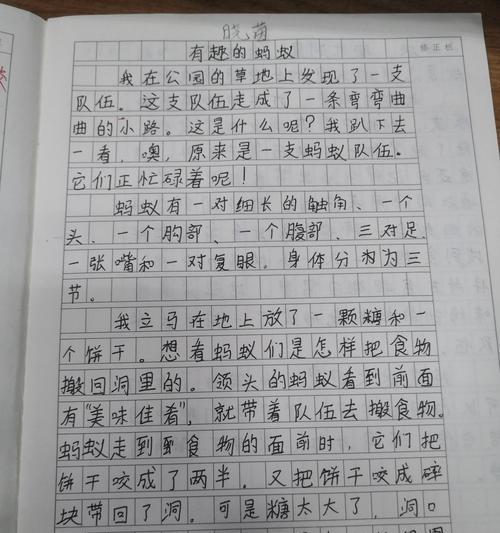 晓菌
有趣的蚂蚁
修正栏
我在公园的草地上发现了一支
队伍。这支队伍走成了一条弯弯曲
曲的小路。这是什么呢？我趴下去
一看，噢，原来是一支蚂蚁队伍。
它们正忙碌着呢！
蚂蚁有一对细长的触角、一个
头、一个胸部、一个腹部、三对足、
一张嘴和一对复眼。身体分为三
节。
我立马在地上放了一颗糖和一
个饼干。想看蚂蚁们是怎样把食物
搬回洞里的。领头的蚂蚁看到前面
有“美味佳肴”，就带着队伍去搬食物。
蚂蚁走到食物的面前时，它们把
饼干咬成了两半。又把饼干咬成碎
块带回了洞。可是糖太大了，洞口